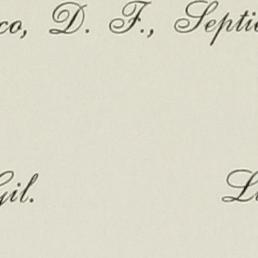 co, D. F., Septie
Gil. L